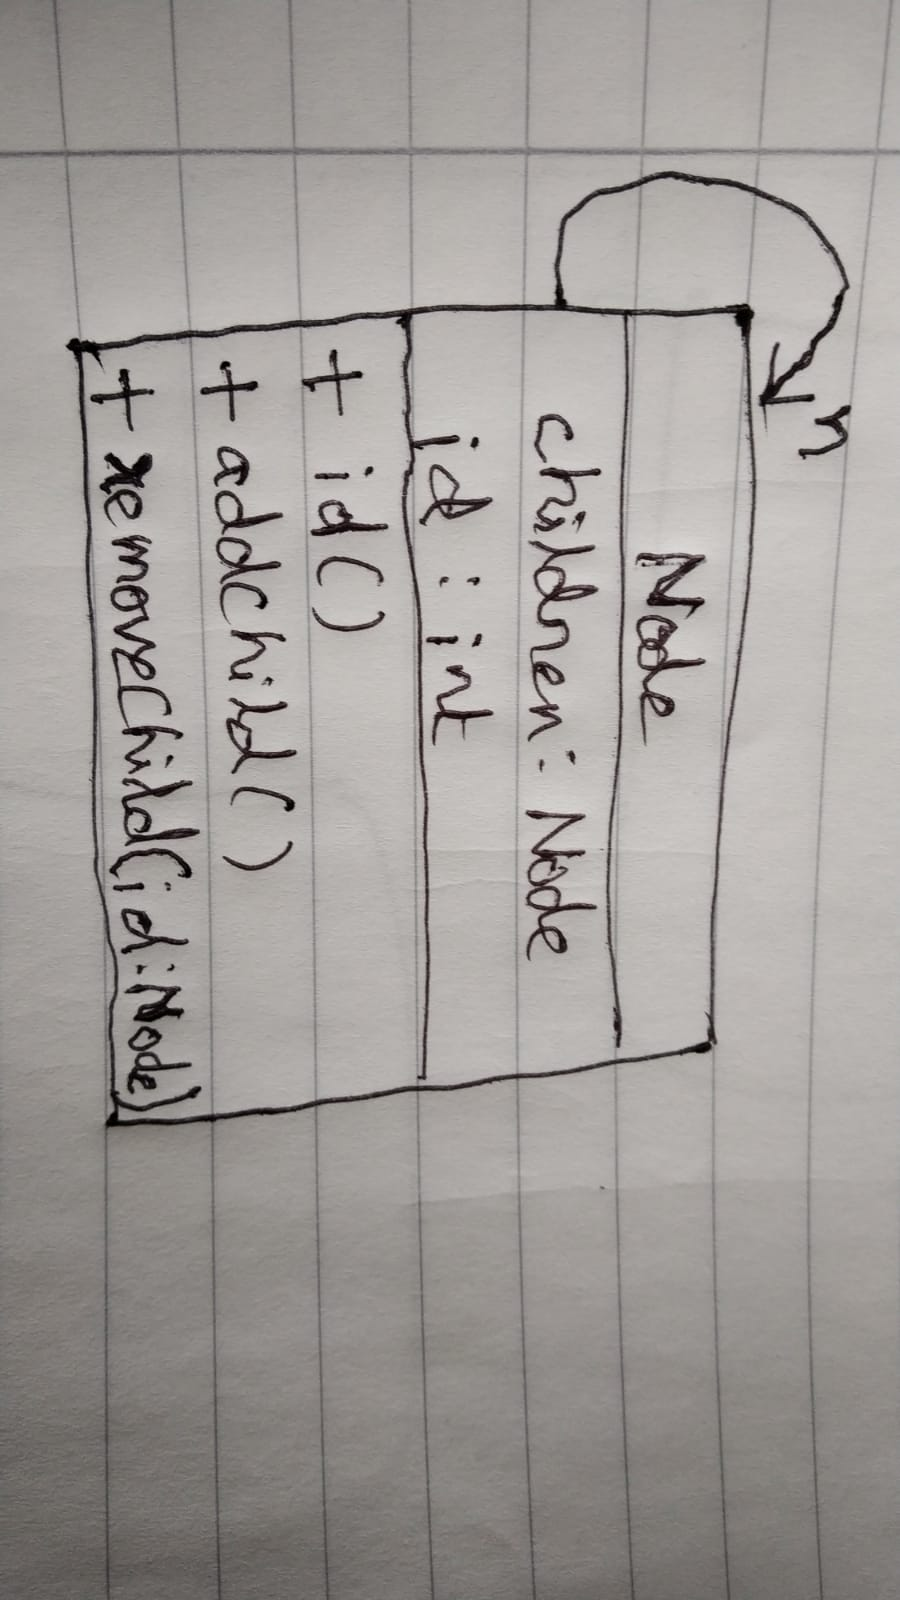 n
Node
children: Node
id : int
+ id()
+ addChild()
+ removeChild(id:Node)